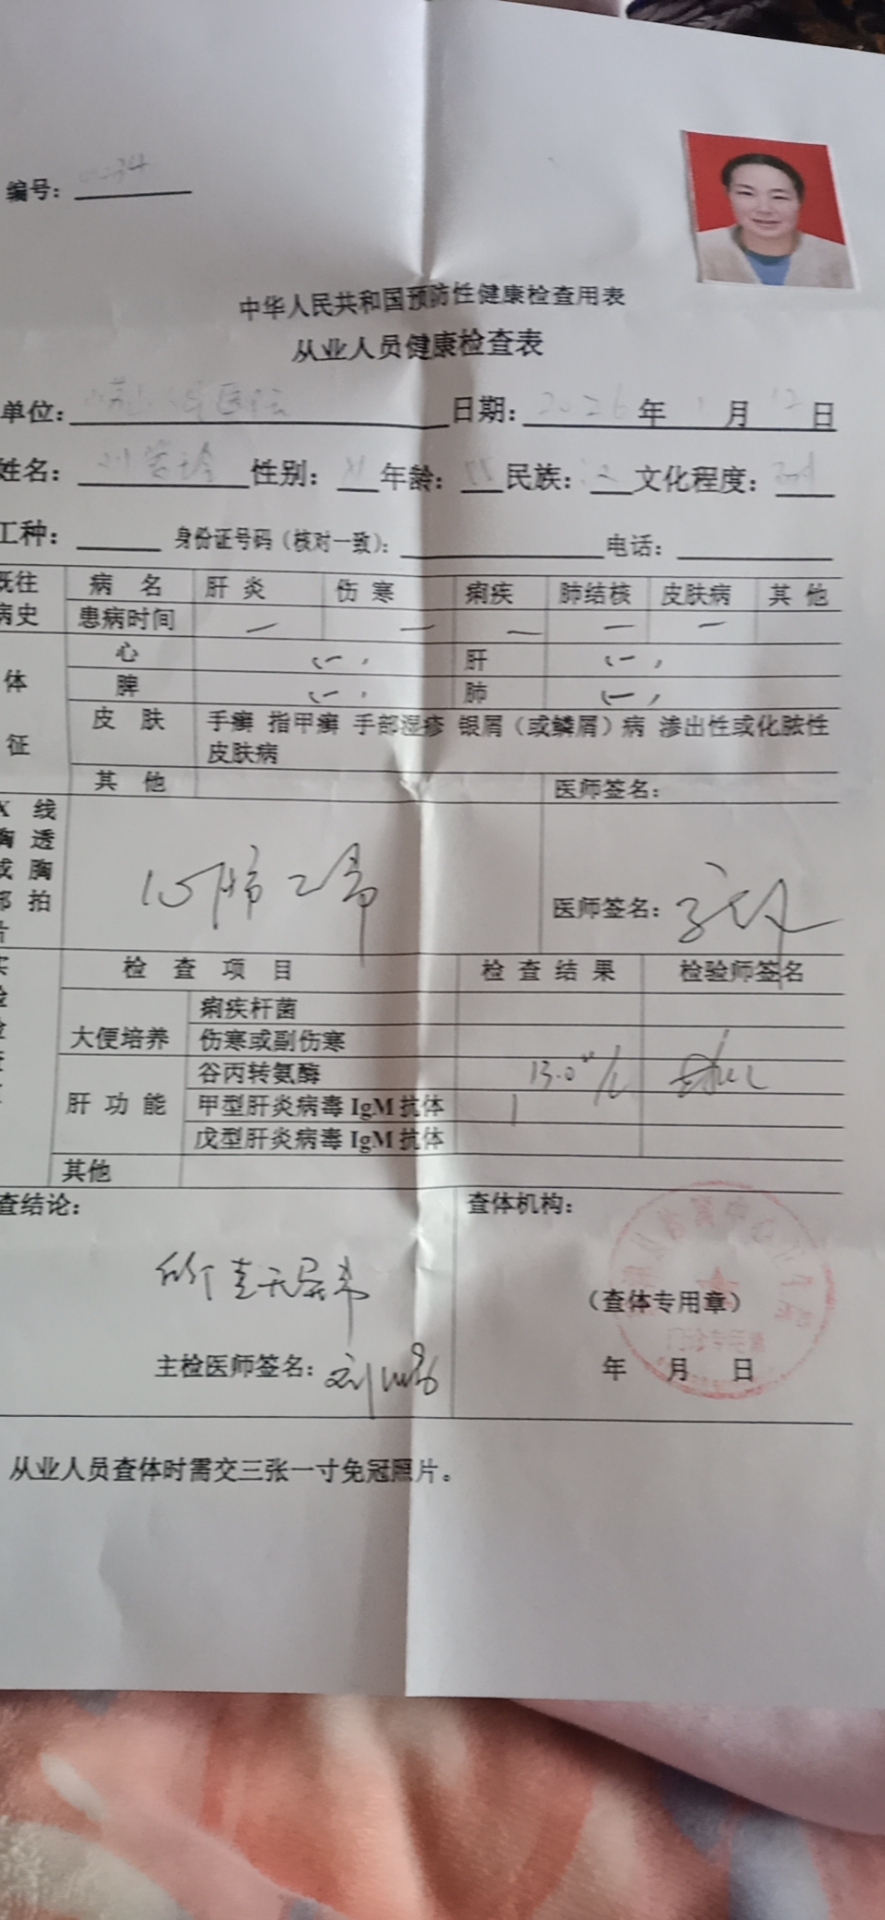 编号:
中华人民共和国预防性健康检查用表
从业人员健康检查表
单位: 日期: 2026 年 1 月 12 日
姓名: 刘 性别: 年龄: 民族: 汉 文化程度:
工种: 身份证号码(核对一致): 电话:
既往病史 病名 肝炎 伤寒 痢疾 肺结核 皮肤病 其他
患病时间 — — — — —
体征 心 (-) 肝 (-)
脾 (-) 肺 (-)
皮肤 手癣 指甲癣 手部湿疹 银屑(或鳞屑)病 渗出性或化脓性
皮肤病
其他 医师签名:
X 线
胸 透
或 胸
部 拍
片
心肺正常 医师签名:
检查项目 检查结果 检验师签名
大便培养 痢疾杆菌
伤寒或副伤寒
肝功能 谷丙转氨酶 13.0
甲型肝炎病毒 IgM 抗体
戊型肝炎病毒 IgM 抗体
其他
查结论: 查体机构:
(查体专用章)
主检医师签名: 刘 年 月 日
从业人员查体时需交三张一寸免冠照片。